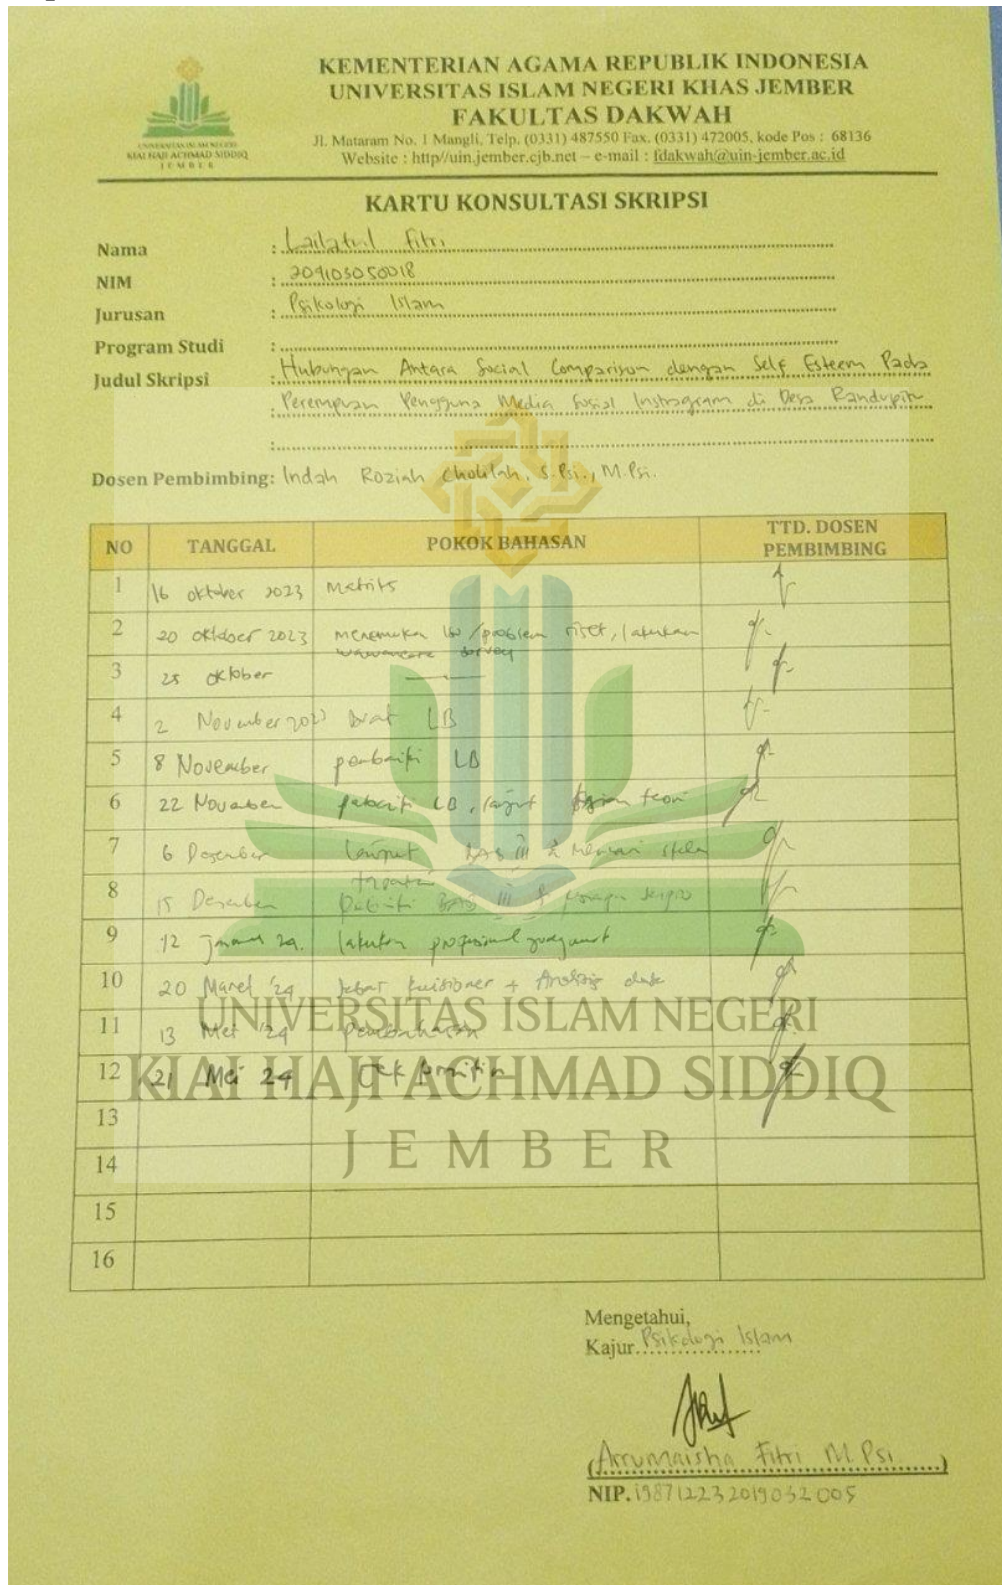 KEMENTERIAN AGAMA REPUBLIK INDONESIA
UNIVERSITAS ISLAM NEGERI KHAS JEMBER
FAKULTAS DAKWAH
Jl. Mataram No. 1 Mangli, Telp. (0331) 487550 Fax. (0331) 472005, kode Pos : 68136
Website : http//uin.jember.cjb.net – e-mail : fdakwah@uin-jember.ac.id
UNIVERSITAS ISLAM NEGERI
KIAI HAJI ACHMAD SIDDIQ
JEMBER
KARTU KONSULTASI SKRIPSI
Nama : Lailatul Fitri
NIM : 209103050018
Jurusan : Psikologi Islam
Program Studi :
Judul Skripsi : Hubungan Antara Social Comparison dengan Self Esteem Pada
: Perempuan Pengguna Media Sosial Instragram di Desa Randupitu
:
Dosen Pembimbing: Indah Roziah Cholilah, S.Psi., M.Psi.
NO TANGGAL POKOK BAHASAN TTD. DOSEN PEMBIMBING
1 16 oktober 2023 Matriks
2 20 oktober 2023 menemukan /problem riset, lakukan
wawancara survey
3 25 oktober
4 2 November 2023 Buat LB
5 8 November LB
6 22 November LB, lanjut teori
7 6 Desember lanjut BAB III & mencari
8 15 Desember BAB III &
9 12 24. lakukan
10 20 Maret '24 sebar kuisioner + Analisis data
11 13 Mei '24 Pembahasan
12 21 Mei 24 Cek
13
14
15
16
UNIVERSITAS ISLAM NEGERI
KIAI HAJI ACHMAD SIDDIQ
JEMBER
Mengetahui,
Kajur. Psikologi Islam
(Arrumaisha Fitri M.Psi)
NIP. 198712232019032005